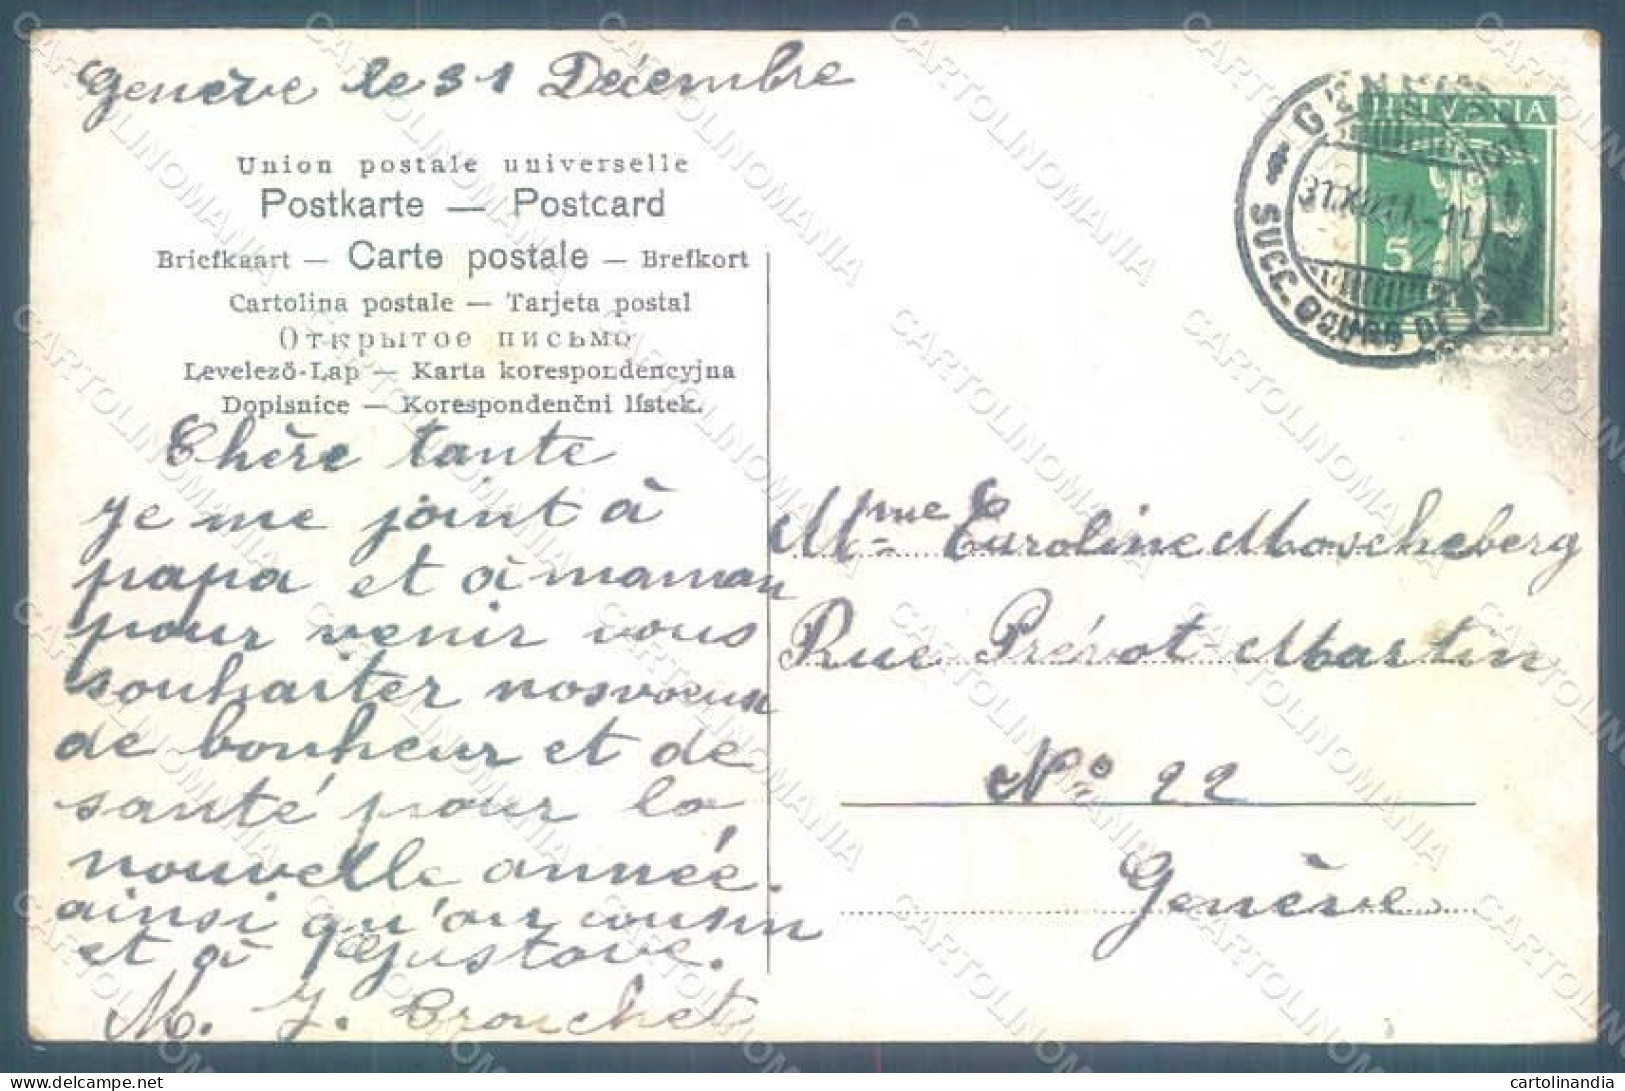 Genève le 31 Décembre
Union postale universelle
Postkarte — Postcard
Briefkaart — Carte postale — Brefkort
Cartolina postale — Tarjeta postal
Открытое письмо
Levelező-Lap — Karta korespondencyjna
Dopisnice — Korespondenční lístek.
Chère tante
je me joint à
papa et à maman
pour venir vous
souhaiter nos voeux
de bonheur et de
santé pour la
nouvelle année.
ainsi qu'au cousin
et à Gustave.
M. J. Crouchet
HELVETIA
5
GENÈVE
31.XII.11.-11
SUCC. BOURG DE FOUR
Mme Euroline Moscheberg
Rue Prévot-Martin
No. 22
Genève
CARTOLINOMANIA
cartolinandia